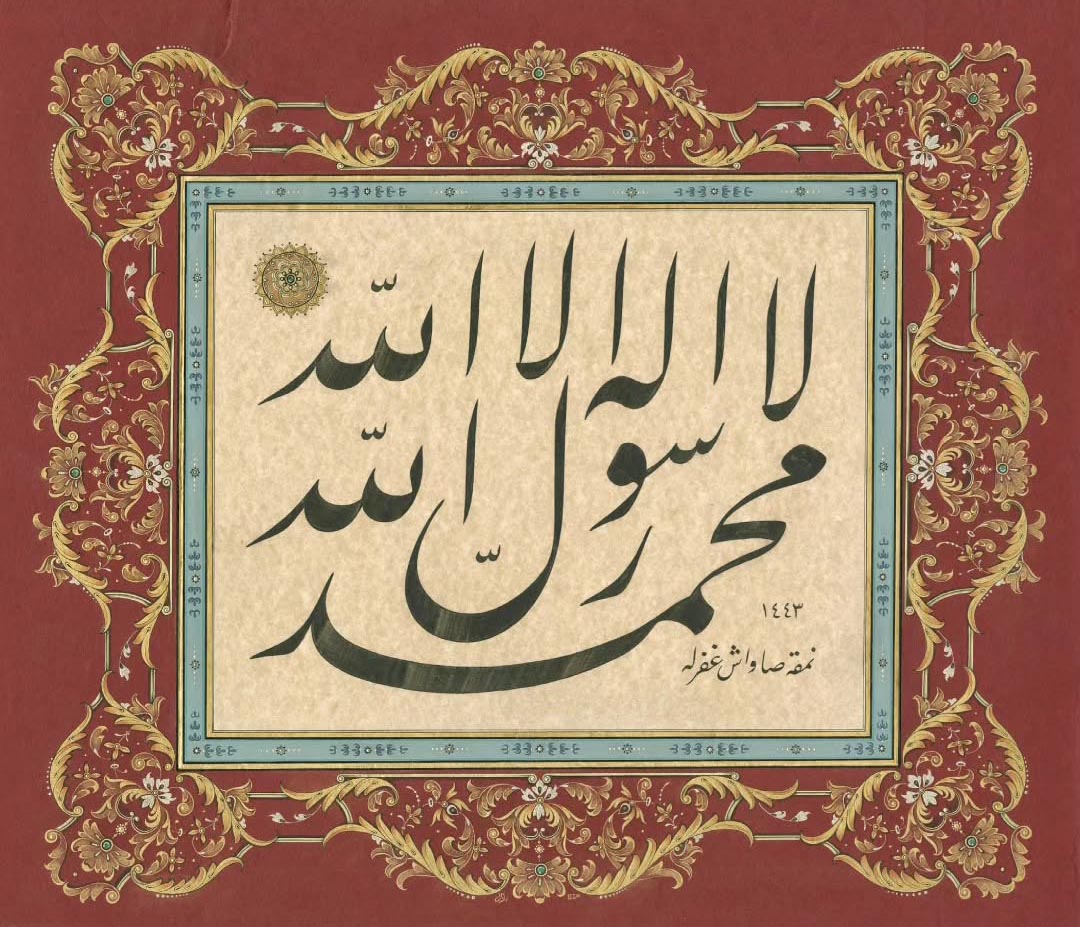 لا اله الا الله
محمد رسول الله
١٤٤٣
نمقه صاواش غفرله